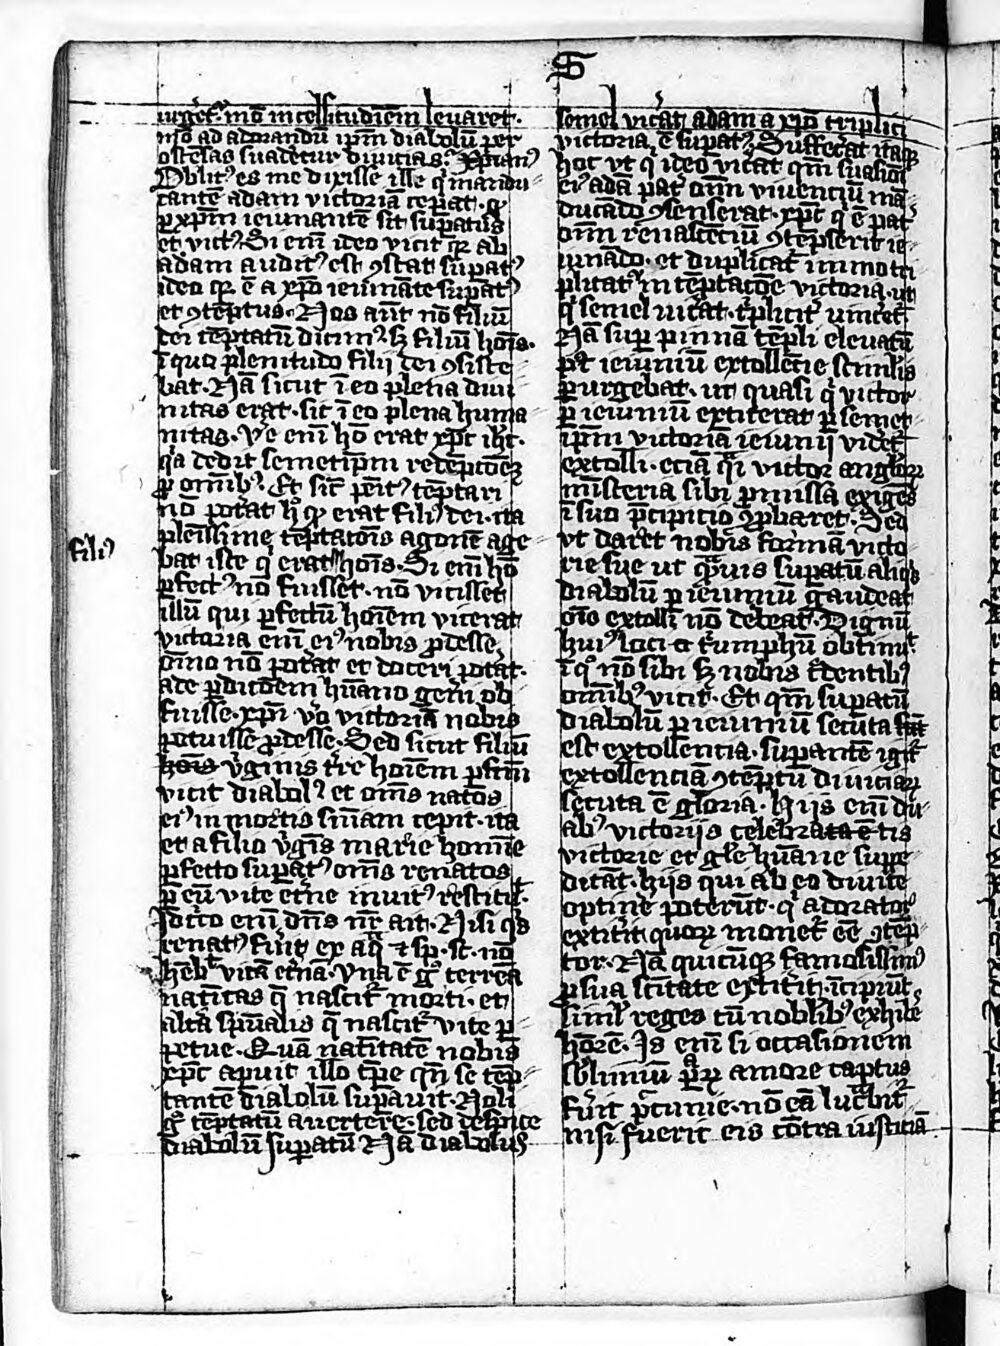 S
urget. mō in celsitudīem levaret.
nō ad adorandū ipm diabolū per
ostēsas suadetur divicias. Xpianꝰ
Oblitꝰ es me dixisse ille q̇ mandu
cantē adam victoriā ceperat. qꝫ
ꝑ xpm ieiunantē sit suꝑatus
et victꝰ. Si eni ideo vicit qꝛ ab
adam auditꝰ est ꝯstat suꝑatꝰ
ideo qꝛ ē a xpo ieiunāte suꝑatꝰ
et ꝯtēptus. Nos aūt nō filiū
dei tēptatū dicimꝰ sꝫ filiū hoīs.
ī quo plenitudo filii dei ꝯsiste
bat. Nā sicut ī eo plena divi
nitas erat. sic ī eo plena huma
nitas. Ve eni hō erat xpc ihc.
q̇a dedit semetipm redēptōeꝫ
ꝓ omībꝰ. Et sic penitꝰ tēptari
nō poterat hͦ qꝫ erat filiꝰ dei. ita
plenissime tēptatoīs agonē age
filiꝰ
bat iste q̇ erat hoīs. Si eni hō
ꝑfectꝰ nō fuisset. nō vicisset
illū qui ꝑfectū hoīem vicerat
victoria eni eiꝰ nobis ꝓdesse
oīno nō poterat et doceri poterat.
ade ꝑdicōem hūano geṅi ob
fuisse. xpi v̇o victoriā nobis
potuisse ꝓdesse. Sed sicut filiū
hoīs v̇ginis tre hoīem ꝑfm
vicit diabolꝰ et omīs natos
eiꝰ in mortis sniam cepit. ita
et a filio v̇gīs marie homīe
ꝑfecto suꝑatꝰ omīs renatos
ꝑ eū vite et̄ne invitꝰ restituit.
Idcirco eni dns nr̄ ait. Nisi q̇s
renatꝰ fu̇it ex aq̄ ⁊ sp. sc. nō
hēbit vitā et̄nā. Una ē gͦ terrea
natīvitas q̄ nascit morti. et
altā spūalis q̄ nascit vite ꝑ
petue. Quā natīvitatē nobis
xpc aperuit illo tpe qn se tēp
tantē diabolū suꝑavit. Noli
gͦ tēptatū avertere. sed respice
diabolū suꝑatū Nā diabolus
semel vicat adam a xpo triplici
victoria ē suꝑatꝰ. Sufficeat itaqꝫ
hoc ut q̇ ideo vicat qm suasioi
eiꝰ adā pat̄ oīm vivenciū mā
ducādo ꝯsenserat. xpc q̇ ē pat̄
oīm renascenciū ꝯtēpserit ie
iunādo. et duplicat̄ immo tri
plicatꝰ in tēptacōe victoria. ut
q̇ semel vicat. tꝛiplicit̄ vincet̄
Nā suꝑ pinnā tēpli elevatū
pꝰ ieiuniū extollēcie stimulis
ꝑurgebat. ut quasi q̇ victor
ꝑ ieiuniū extiterat ꝑ semet
ipm victoriā ieiunii videt̄
extolli. eciā q̇i victor anglorꝝ
misteria sibi ꝓmissa exigēs
ī suo ꝓcipicio ꝯꝓbaret. Sed
ut daret nobis formā victo
rie sue ut q̄vis suꝑatū aliq̇s
diabolū ꝑ ieiuniū gaudeat
oīo extolli nō debeat. Dignū
huiꝰ loci ⁊ triumphū obtinuit
ī qͦ nō sibi sꝫ nobis credentibꝰ
omībꝰ vicit. Et qm suꝑatū
diabolū ꝑ ieiuniū secuta
est extollencia. suꝑantē igit̄
extollenciā ꝯtēptū diviciaꝝ
secuta ē gloria. Hiis eni du
abꝰ victoriis celebrata ē tis
victorie et gle hūane suppe
ditāt. hiis qui ab eo divite
optine poterūt. q̇ adorator
extiterit quoꝝ monet̄ eē ꝯtēp
tor. Nā quicūqꝫ famosissimꝰ
ꝑ sua scītate extiterit. īcipiūt
simul reges cū nobilibꝰ exhibe
hōre. Is eni si occasionem
sblimiū ꝑꝝ amore captus
fuerit pecunie. nō eā lucbit̄
nisi fuerit eis cōtra iusticiā